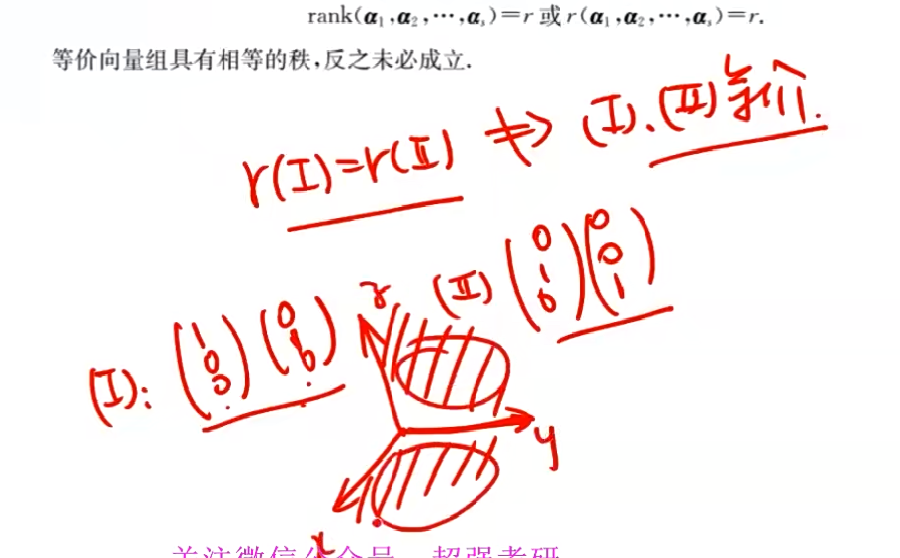 rank(α₁,α₂,⋯,αₛ)=r 或 r(α₁,α₂,⋯,αₛ)=r.
等价向量组具有相等的秩,反之未必成立.
r(I)=r(II) ⇏ (I)、(II)等价.
(I): (1 0 0) (0 1 0)
(II) (0 1 0) (0 0 1)
z
y
x
关注微信公众号 超强考研